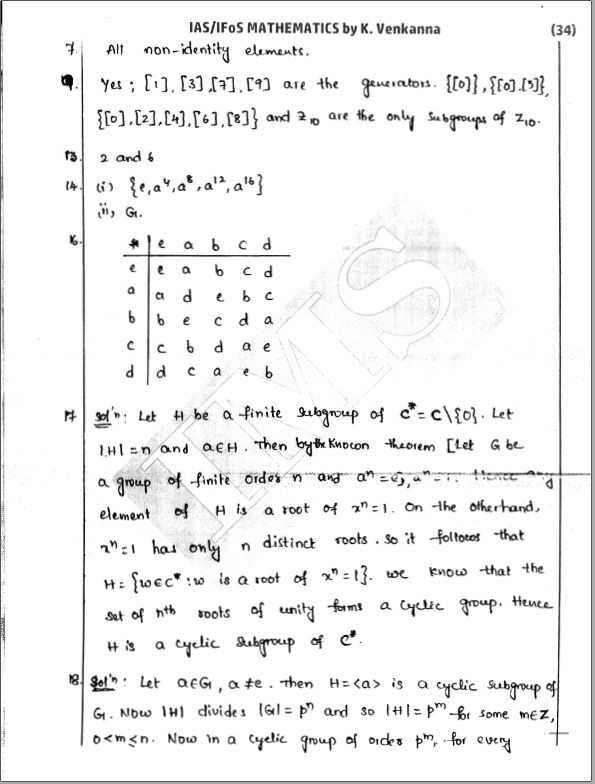 IAS/IFoS MATHEMATICS by K. Venkanna (34)
7. All non-identity elements.
9. Yes ; [1], [3], [7], [9] are the generators. {[0]}, {[0].[5]},
{[0],[2],[4],[6],[8]} and Z₁₀ are the only subgroups of Z₁₀.
13. 2 and 6
14. (i) {e, a⁴, a⁸, a¹², a¹⁶}
(ii), G.
16. * e a b c d
e e a b c d
a a d e b c
b b e c d a
c c b d a e
d d c a e b
IMS
17 Sol'n: Let H be a finite subgroup of C* = C\{0}. Let
|H| = n and a∈H. Then by the known theorem [Let G be
a group of finite order n and aⁿ = e], aⁿ = 1. Hence any
element of H is a root of xⁿ=1. On the otherhand,
xⁿ=1 has only n distinct roots. So it follows that
H = {w∈C* : w is a root of xⁿ=1}. We know that the
set of nth roots of unity forms a cyclic group. Hence
H is a cyclic subgroup of C*.
18. Sol'n: Let a∈G, a≠e. Then H=<a> is a cyclic subgroup of
G. Now |H| divides |G| = pⁿ and so |H| = pᵐ for some m∈Z,
0<m≤n. Now in a cyclic group of order pᵐ, for every